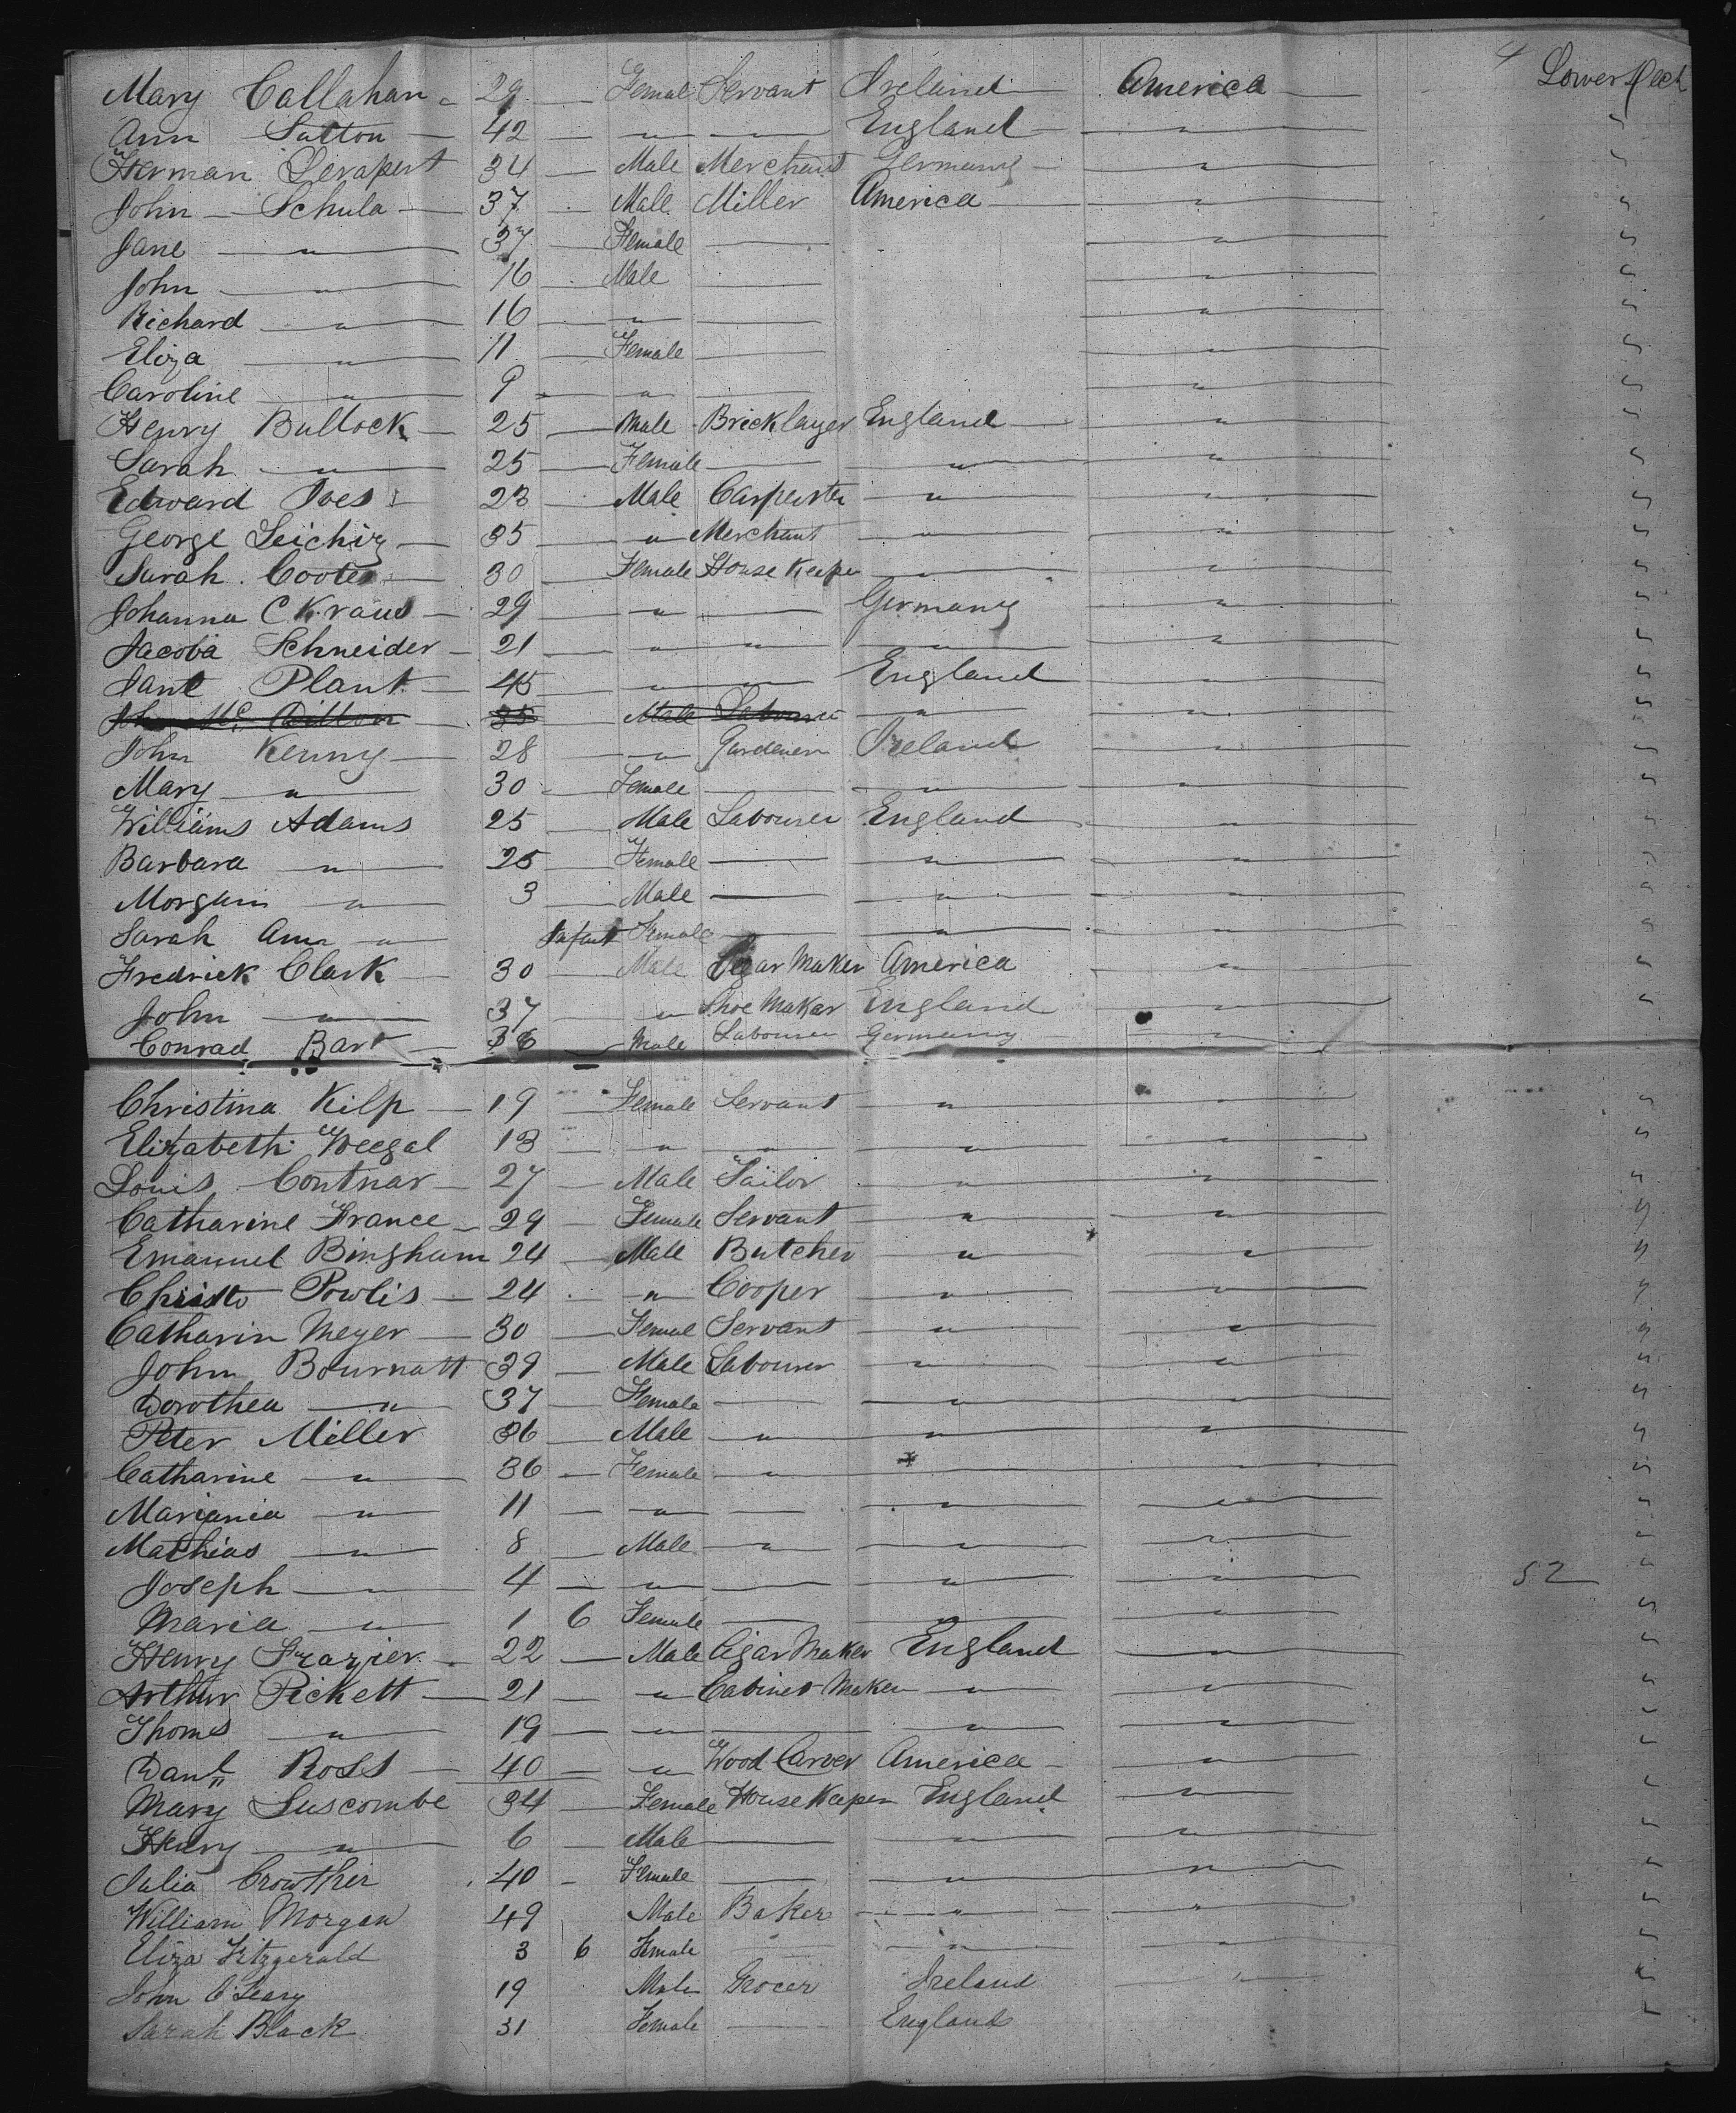 4 Lower Deck
Mary Callahan 29 — Female Servant Ireland America
Ann Sutton — 42 — " — England — " "
Herman 34 — Male Merchant Germany — " "
John — Schula — 37 — Male Miller America — " "
Jane — " — 37 — Female — " "
John — " — 16 — Male — " "
Richard — " — 16 — " — " "
Eliza — " — 11 — Female — " "
Caroline — " — 9 — " — " "
Henry Bullock — 25 — Male Bricklayer England — " "
Sarah — " — 25 — Female — " — " "
Edward Ives 23 — Male Carpenter — " — " "
George 35 — " Merchant — " — " "
Sarah Coote 30 — Female House Keeper — " "
Johanna C Kraus — 29 — " — Germany — " "
Jacoba Schneider — 21 — " " — " "
Jane Plant — 45 — " — England — " "
John Mc Dillon — 35 — Male Labourer — " — " "
John Kenny — 28 — " Gardener Ireland — " "
Mary — " — 30 — Female — " — " "
Williams Adams 25 — Male Labourer England — " "
Barbara — " — 25 — Female — " — " "
Morgan — " — 3 — Male — " — " "
Sarah Ann — " Infant Female — " — " "
Fredrick Clark — 30 — Male Cigar Maker America — " "
John — " — 37 — " Shoe Maker England — " "
Conrad Bar 36 — Male Labourer Germany — "
Christina Kilp — 19 — Female Servant — " — " "
Elizabeth Weegal 13 — " — " — " "
Louis Contnar — 27 — Male Tailor — " — " "
Catharine France — 29 — Female Servant — " — " "
Emanuel Bingham 24 — Male Butcher " " "
Christo Powlis — 24 — " Cooper — " — " "
Catharin Meyer — 30 — Female Servant — " — " "
John Bournatt 39 — Male Labourer — " — " "
Dorothea — " — 37 — Female — " — " "
Peter Miller 36 — Male — " — " — " "
Catharine — " — 36 — Female — " — "
Mariania — " — 11 — " — " — " "
Mathias — " — 8 — Male — " — " — " "
Joseph — " — 4 — " — " — " "
52
Maria — " — 1 6 Female — " — " "
Henry Frazier 22 — Male Cigar Maker England — " "
Arthur Pickett — 21 — " Cabinet Maker — " — " "
Thoms — " — 19 — " — " — " "
Danl Ross — 40 — " Wood Carver America — " "
Mary Luscombe 34 — Female House Keeper England — " "
Henry — " — 6 — Male — " — " "
Julia Crowther 40 — Female — " — " "
William Morgan 49 Male Baker — " — " "
Eliza Fitzgerald 3 6 Female — " — " "
John O'Leary 19 Male Grocer Ireland — " "
Sarah Black 31 Female — England "